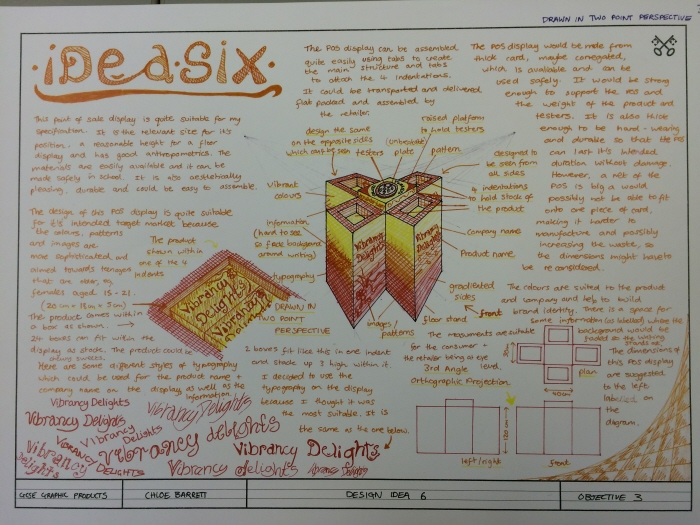 DRAWN IN TWO POINT PERSPECTIVE
iDea Six.
This point of sale display is quite suitable for my
specification. It is the relevant size for it's
position, a reasonable height for a floor
display and has good anthropometrics. The
materials are easily available and it can be
made safely in school. It is also aesthetically
pleasing, durable and could be easy to assemble.
The POS display can be assembled
quite easily using tabs to create
the main structure and tabs
to attach the 4 indentations.
It could be transported and delivered
flat packed and assembled by
the retailer.
The POS display would be made from
thick card, maybe corrugated,
which is available and can be
used safely. It would be strong
enough to support the POS and
the weight of the product and
testers. It is also thick
enough to be hard-wearing
and durable so that the POS
can last it's blended
duration without damage.
However, a net of the
POS is big & would
possibly not be able to fit
onto one piece of card,
making it harder to
manufacture and possibly
increasing the waste, so
the dimensions might have to
be re-considered.
design the same
on the opposite sides
which can't be seen
testers
plate
raised platform
to hold testers
pattern
designed to
be seen from
all sides
4 indentations
to hold stock of
the product
company name
Product name
graduated
sides
front
floor stand
images/
patterns
Vibrant
colours
information
(hard to see
so first background
around writing)
typography
Vibrancy
Delights
Vibrancy
Delights
The design of this POS display is quite suitable
for it's intended target market because
the colours, patterns
and images are
more sophisticated, and
aimed towards teenagers
that are older, eg
females aged 15-21.
The product
shown within
one of the 4
indents
(20cm x 15cm x 5cm)
The product comes within
a box as shown.
24 boxes can fit within the
display as stock. The product could be
always switched.
Vibrancy
Delights
Vibrancy
Delights
DRAWN IN
TWO POINT
PERSPECTIVE
Here are some different styles of typography
which could be used for the product name +
company name on the display as well as the
information.
2 boxes fit like this in one indent
and stack up 3 high within it.
I decided to use the
typography on the display
because I thought it was
the most suitable. It is
the same as the one below.
Vibrancy Delights
Vibrancy Delights
Vibrancy Delights
Vibrancy
Delights
Vibrancy
Delights
Vibrancy
Delights
Vibrancy
Delights
Vibrancy delights
Vibrancy delights
Vibrancy Delights
Vibrancy Delights
The colours are suited to the product
and company and help to build
brand identity. There is a space for
some information (as labelled) where the
background would be
faded so the writing
stands out.
The measurements are suitable
for the consumer +
the retailer being at eye
level.
3rd Angle
Orthographic Projection.
The dimensions of
this POS display
are suggested
to the left
labelled on
the
diagram.
plan
40cm
120cm
left/right
front
GCSE GRAPHIC PRODUCTS
CHLOE BARRETT
DESIGN IDEA 6
OBJECTIVE 3